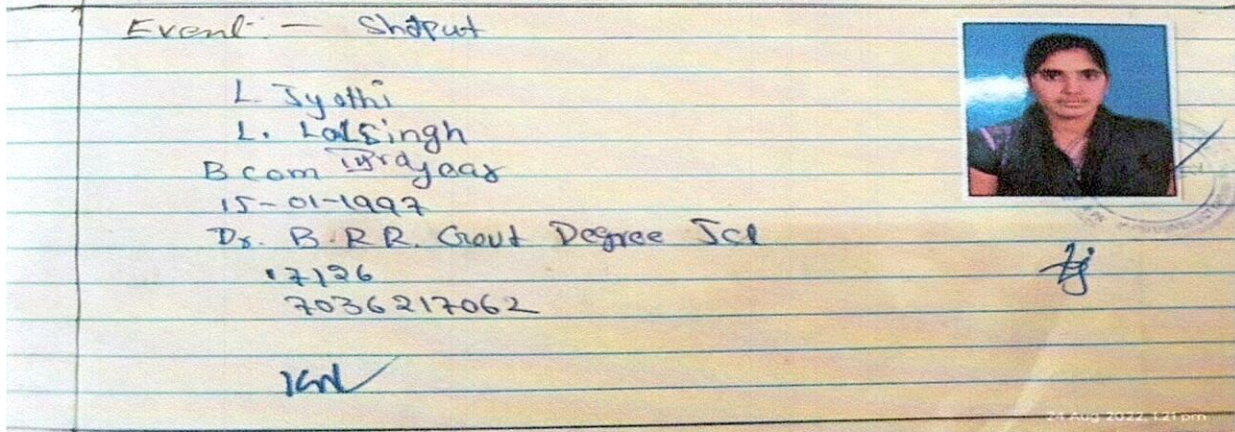 Event:- Shotput
L. Jyothi
L. Lalsingh
B com IIIrd year
15-01-1997
Dr. B.R.R. Govt Degree Jcl
17126
7036217062
24 Aug 2022, 1:21 pm